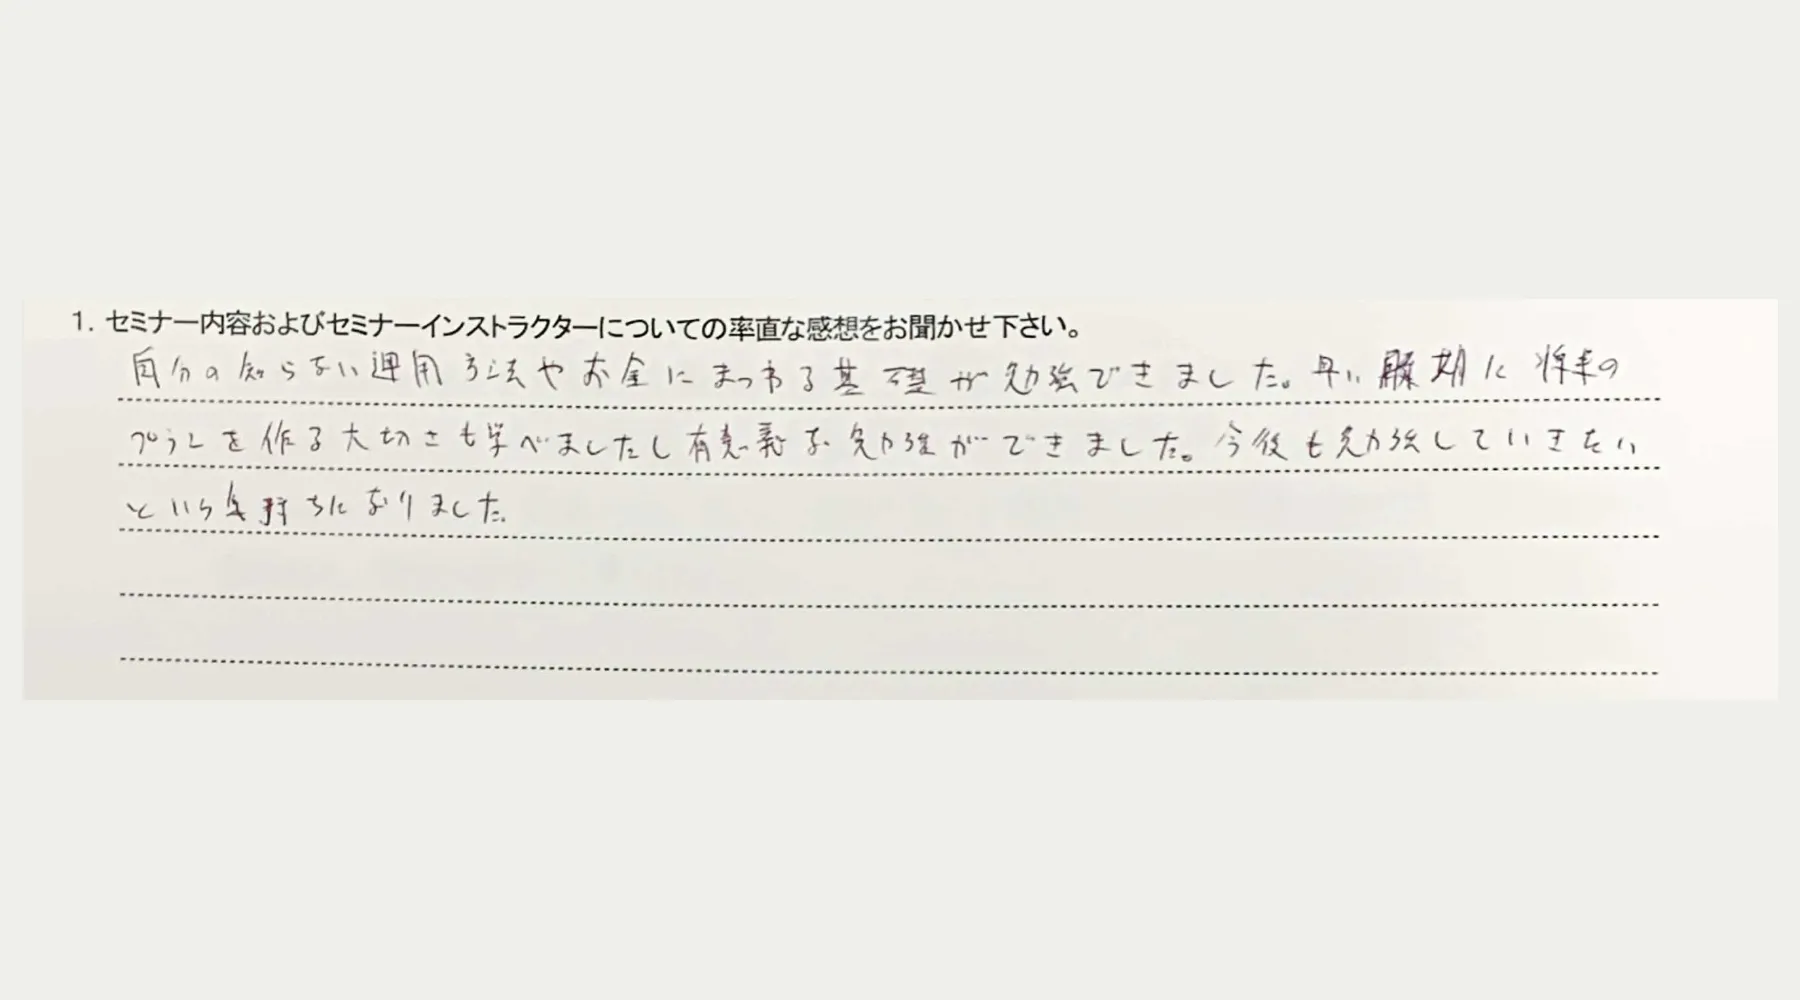 1. セミナー内容およびセミナーインストラクターについての率直な感想をお聞かせ下さい。
自分の知らない運用方法やお金にまつわる基礎が勉強できました。早い時期に将来の
プランを作る大切さも学べましたし有意義な勉強ができました。今後も勉強していきたい
という気持ちになりました。